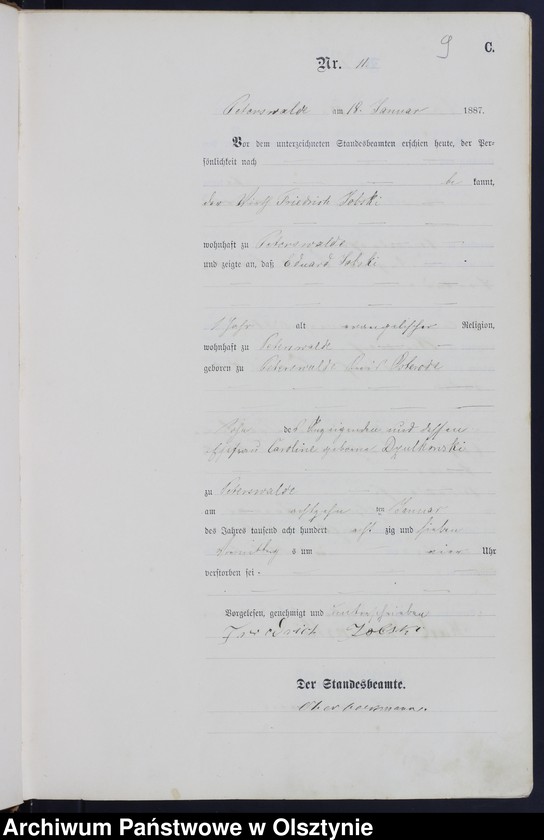 9 C.
Nr. 11.
Peterswalde am 18. Januar 1887.
Vor dem unterzeichneten Standesbeamten erschien heute, der Per-
sönlichkeit nach
be kannt,
der Wirth Friedrich Zolski
wohnhaft zu Peterswalde
und zeigte an, daß Eduard Zolski
1 Jahr alt evangelischer Religion,
wohnhaft zu Peterswalde
geboren zu Peterswalde Kreis Osterode
Sohn des Anzeigenden und dessen
Ehefrau Caroline geborne Dzulkowski
zu Peterswalde
am achtzehn ten Januar
des Jahres tausend acht hundert acht zig und sieben
Vormittag s um vier Uhr
verstorben sei.
Vorgelesen, genehmigt und unterschrieben
Friedrich Zolski
Der Standesbeamte.
Archiwum Państwowe w Olsztynie